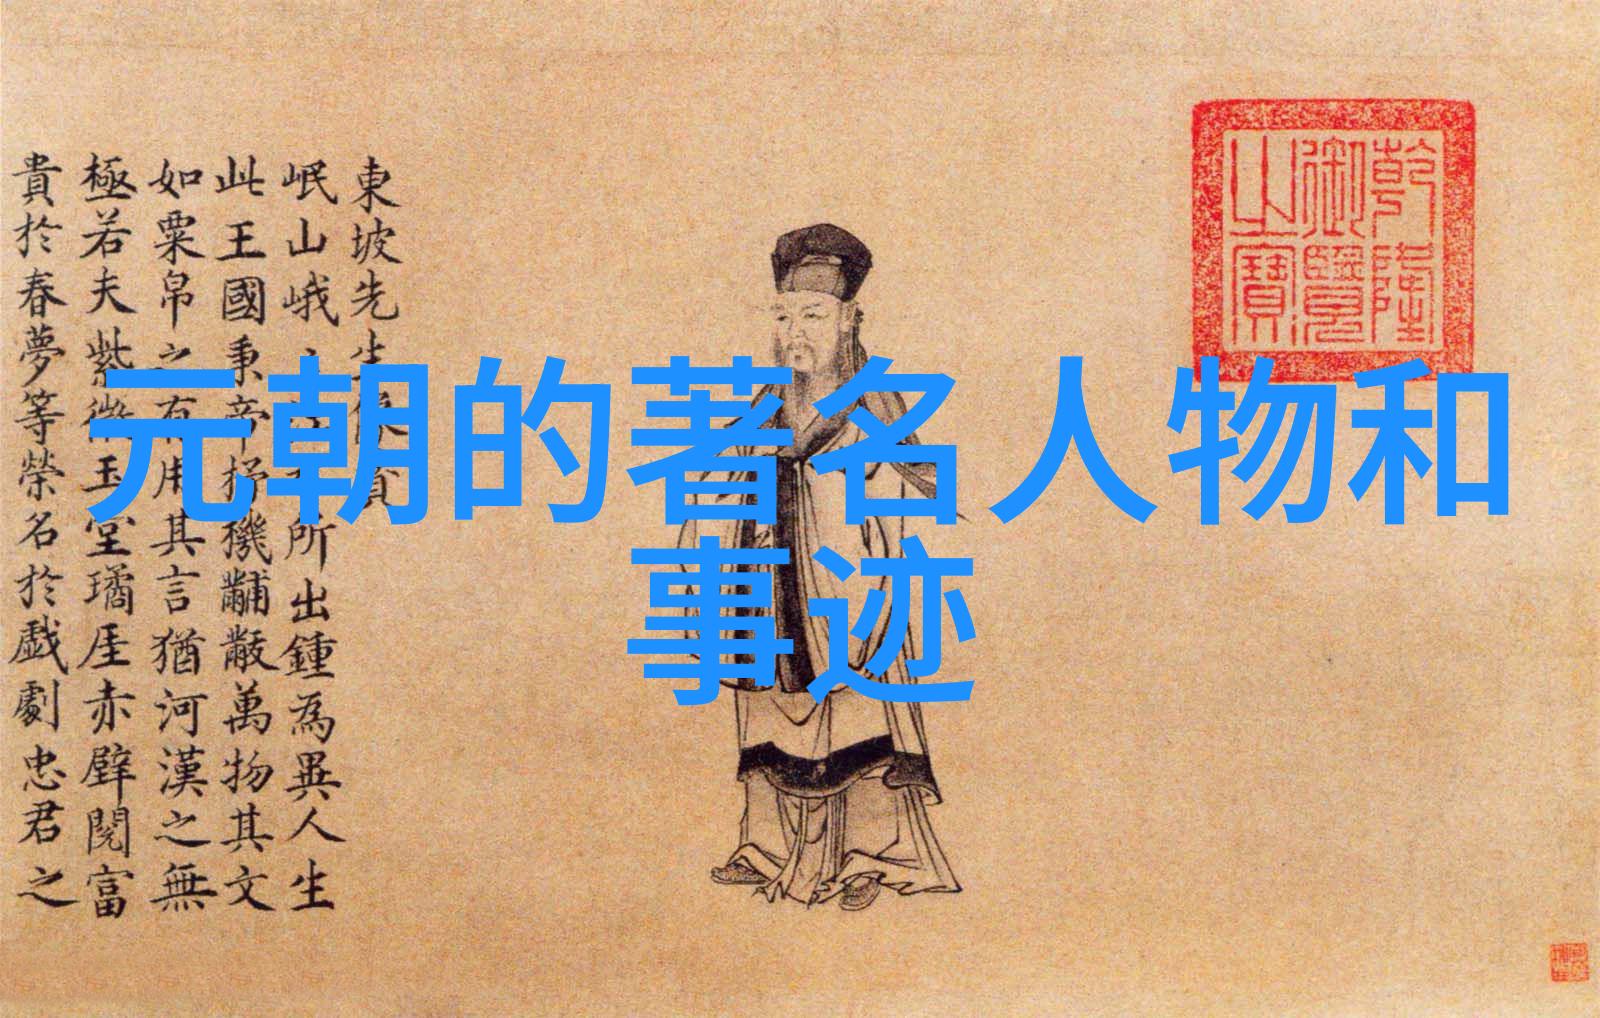 元朝的著名人物和
事迹
乾隆
御覽
之寶
東坡先生
岷山峨 所出鍾為異人生
此王國秉帝杼機黼黻萬物其文
如粟帛之有用其言猶河漢之無
極若夫紫微玉堂璚厓赤壁閱富
貴於春夢等榮名於戲劇忠君之